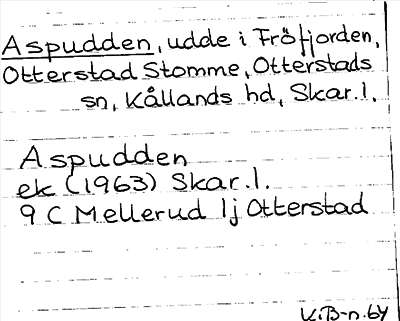 Aspudden, udde i Fröfjorden,
Otterstad Stomme, Otterstads
sn, Kållands hd, Skar.l.
Aspudden
ek (1963) Skar.l.
9 C Mellerud 1j Otterstad
K.B-n.64